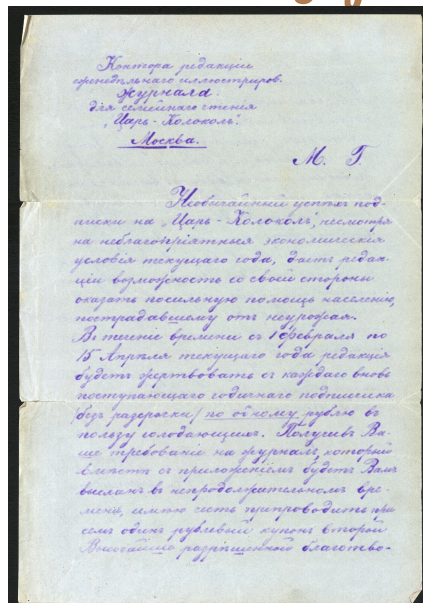 Контора редакціи
еженедѣльнаго иллюстриров.
журнала
для семейнаго чтенія
"Царь-Колоколъ".
Москва.
М. Г.
Необычайный успѣхъ под-
писки на "Царь-Колоколъ", несмотря
на неблагопріятныя экономическія
условія текущаго года, даетъ редак-
ціи возможность со своей стороны
оказать посильную помощь населенію,
пострадавшему отъ неурожая.
Въ теченіе времени съ 1 Февраля по
15 Апрѣля текущаго года редакція
будетъ жертвовать съ каждаго вновь
поступающаго годичнаго подписчика
(безъ разсрочки) по одному рублю въ
пользу голодающихъ. Получивъ Ва-
ше требованіе на журналъ, который
вмѣстѣ съ приложеніемъ будетъ Вамъ
высланъ въ непродолжительномъ вре-
мени, имѣю честь препроводить при
семъ одинъ рублевый купонъ второй
Высочайше разрѣшенной благотво-